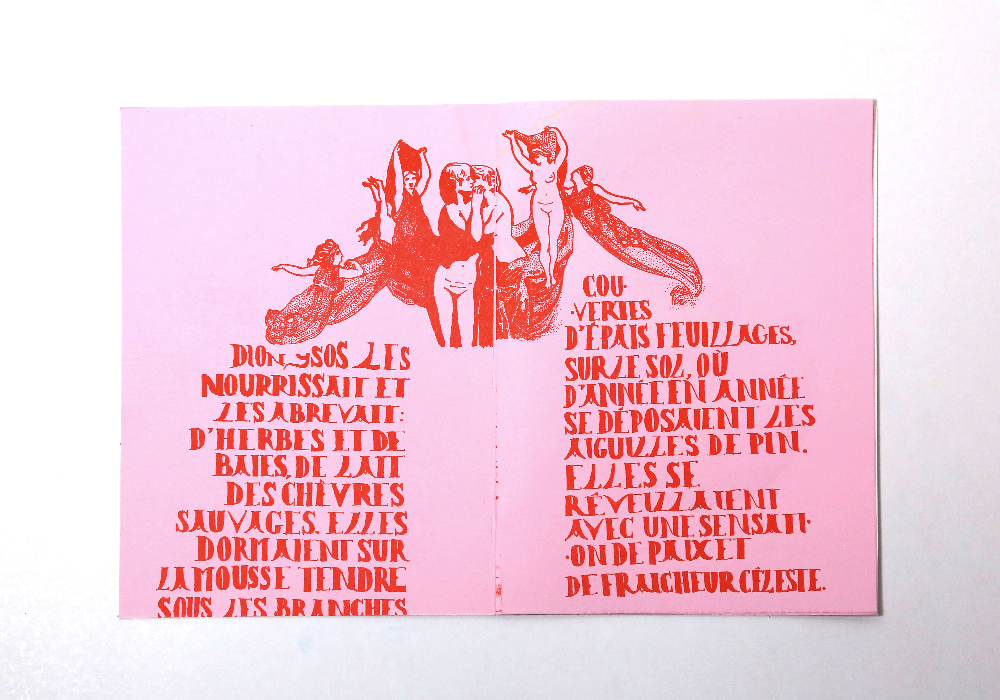 DIONYSOS LES
NOURRISSAIT ET
LES ABREVAIT:
D'HERBES ET DE
BAIES, DE LAIT
DES CHÈVRES
SAUVAGES. ELLES
DORMAIENT SUR
LA MOUSSE TENDRE
SOUS LES BRANCHES
COU-
-VERTES
D'ÉPAIS FEUILLAGES,
SUR LE SOL, OÙ
D'ANNÉE EN ANNÉE
SE DÉPOSAIENT LES
AIGUILLES DE PIN.
ELLES SE
RÉVEILLAIENT
AVEC UNE SENSATI-
-ON DE PAIX ET
DE FRAICHEUR CÉLESTE.